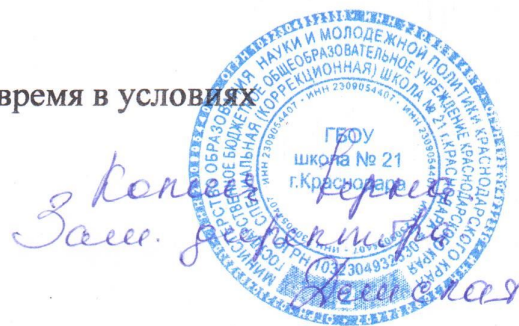 время в условиях
МИНИСТЕРСТВО ОБРАЗОВАНИЯ НАУКИ И МОЛОДЕЖНОЙ ПОЛИТИКИ КРАСНОДАРСКОГО КРАЯ
БЮДЖЕТНОЕ ОБЩЕОБРАЗОВАТЕЛЬНОЕ УЧРЕЖДЕНИЕ КРАСНОДАРСКОГО КРАЯ
СПЕЦИАЛЬНАЯ (КОРРЕКЦИОННАЯ) ШКОЛА № 21 Г.КРАСНОДАРА
ИНН 2309054407
ГБОУ
школа № 21
г.Краснодара
Копия верна
Зам. директора